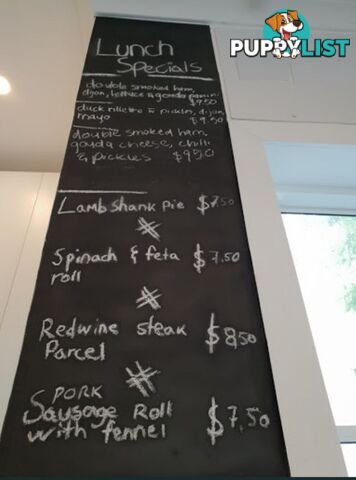 PUPPYLIST
Lunch
Specials
double smoked ham,
dijon, lettuce & gouda panini
$9.50
duck rillette & pickles, dijon,
mayo $9.50
double smoked ham,
gouda cheese, chilli
& pickles $9.50
Lamb Shank Pie $7.50
Spinach & feta $7.50
roll
Redwine steak $8.50
Parcel
PORK
Sausage Roll $7.50
with fennel